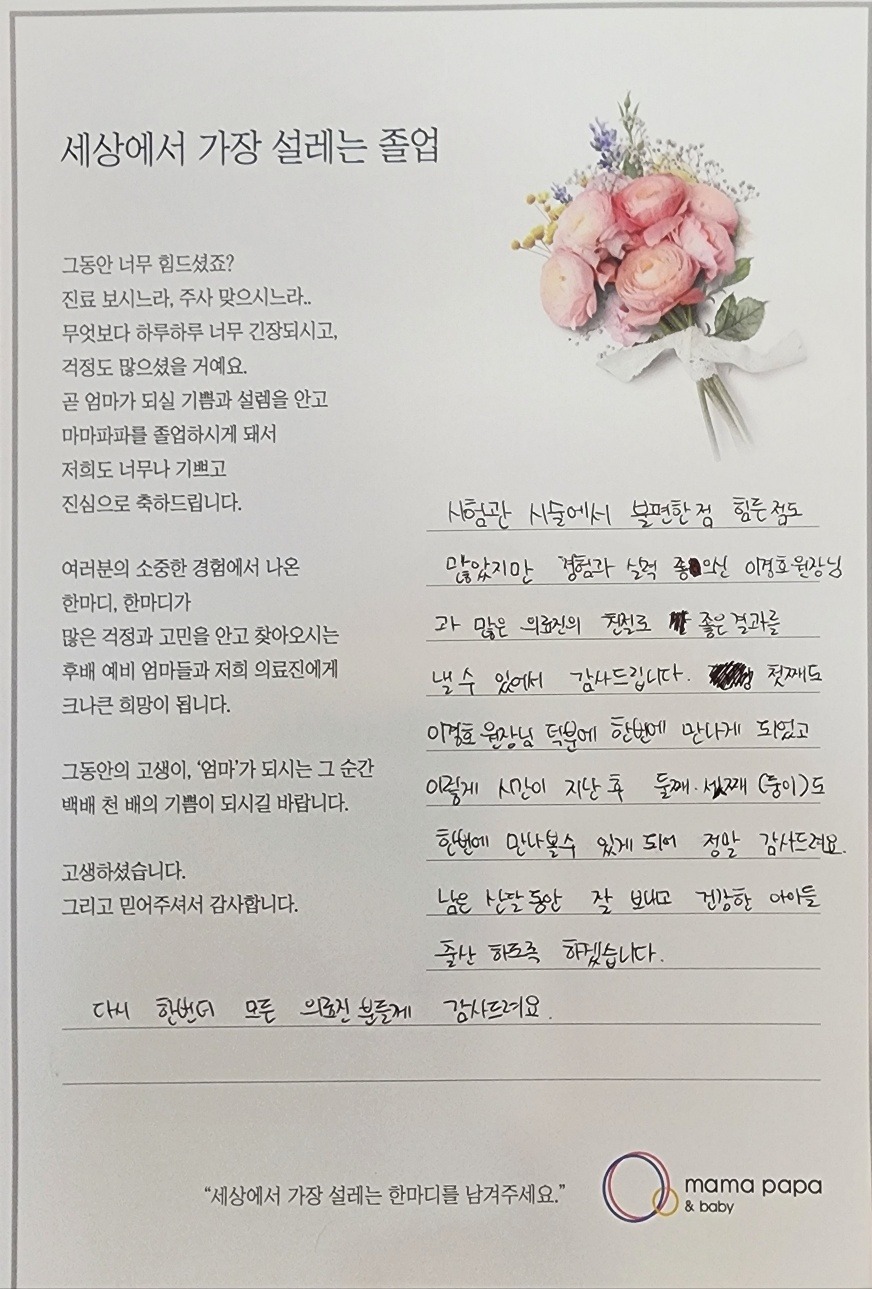 세상에서 가장 설레는 졸업
그동안 너무 힘드셨죠?
진료 보시느라, 주사 맞으시느라..
무엇보다 하루하루 너무 긴장되시고,
걱정도 많으셨을 거예요.
곧 엄마가 되실 기쁨과 설렘을 안고
마마파파를 졸업하시게 돼서
저희도 너무나 기쁘고
진심으로 축하드립니다.
여러분의 소중한 경험에서 나온
한마디, 한마디가
많은 걱정과 고민을 안고 찾아오시는
후배 예비 엄마들과 저희 의료진에게
크나큰 희망이 됩니다.
그동안의 고생이, ‘엄마’가 되시는 그 순간
백배 천 배의 기쁨이 되시길 바랍니다.
고생하셨습니다.
그리고 믿어주셔서 감사합니다.
시험관 시술에서 불편한점 힘든점도
많았지만 경험과 실력 좋으신 이경호원장님
과 많은 의료진의 친절로 좋은결과를
낼 수 있어서 감사드립니다. 첫째도
이경호 원장님 덕분에 한번에 만나게 되었고
이렇게 시간이 지난 후 둘째·셋째 (둥이)도
한번에 만나볼수 있게 되어 정말 감사드려요.
남은 산달동안 잘 보내고 건강한 아이들
출산 하도록 하겠습니다.
다시 한번더 모든 의료진분들께 감사드려요.
“세상에서 가장 설레는 한마디를 남겨주세요.”
mama papa
& baby